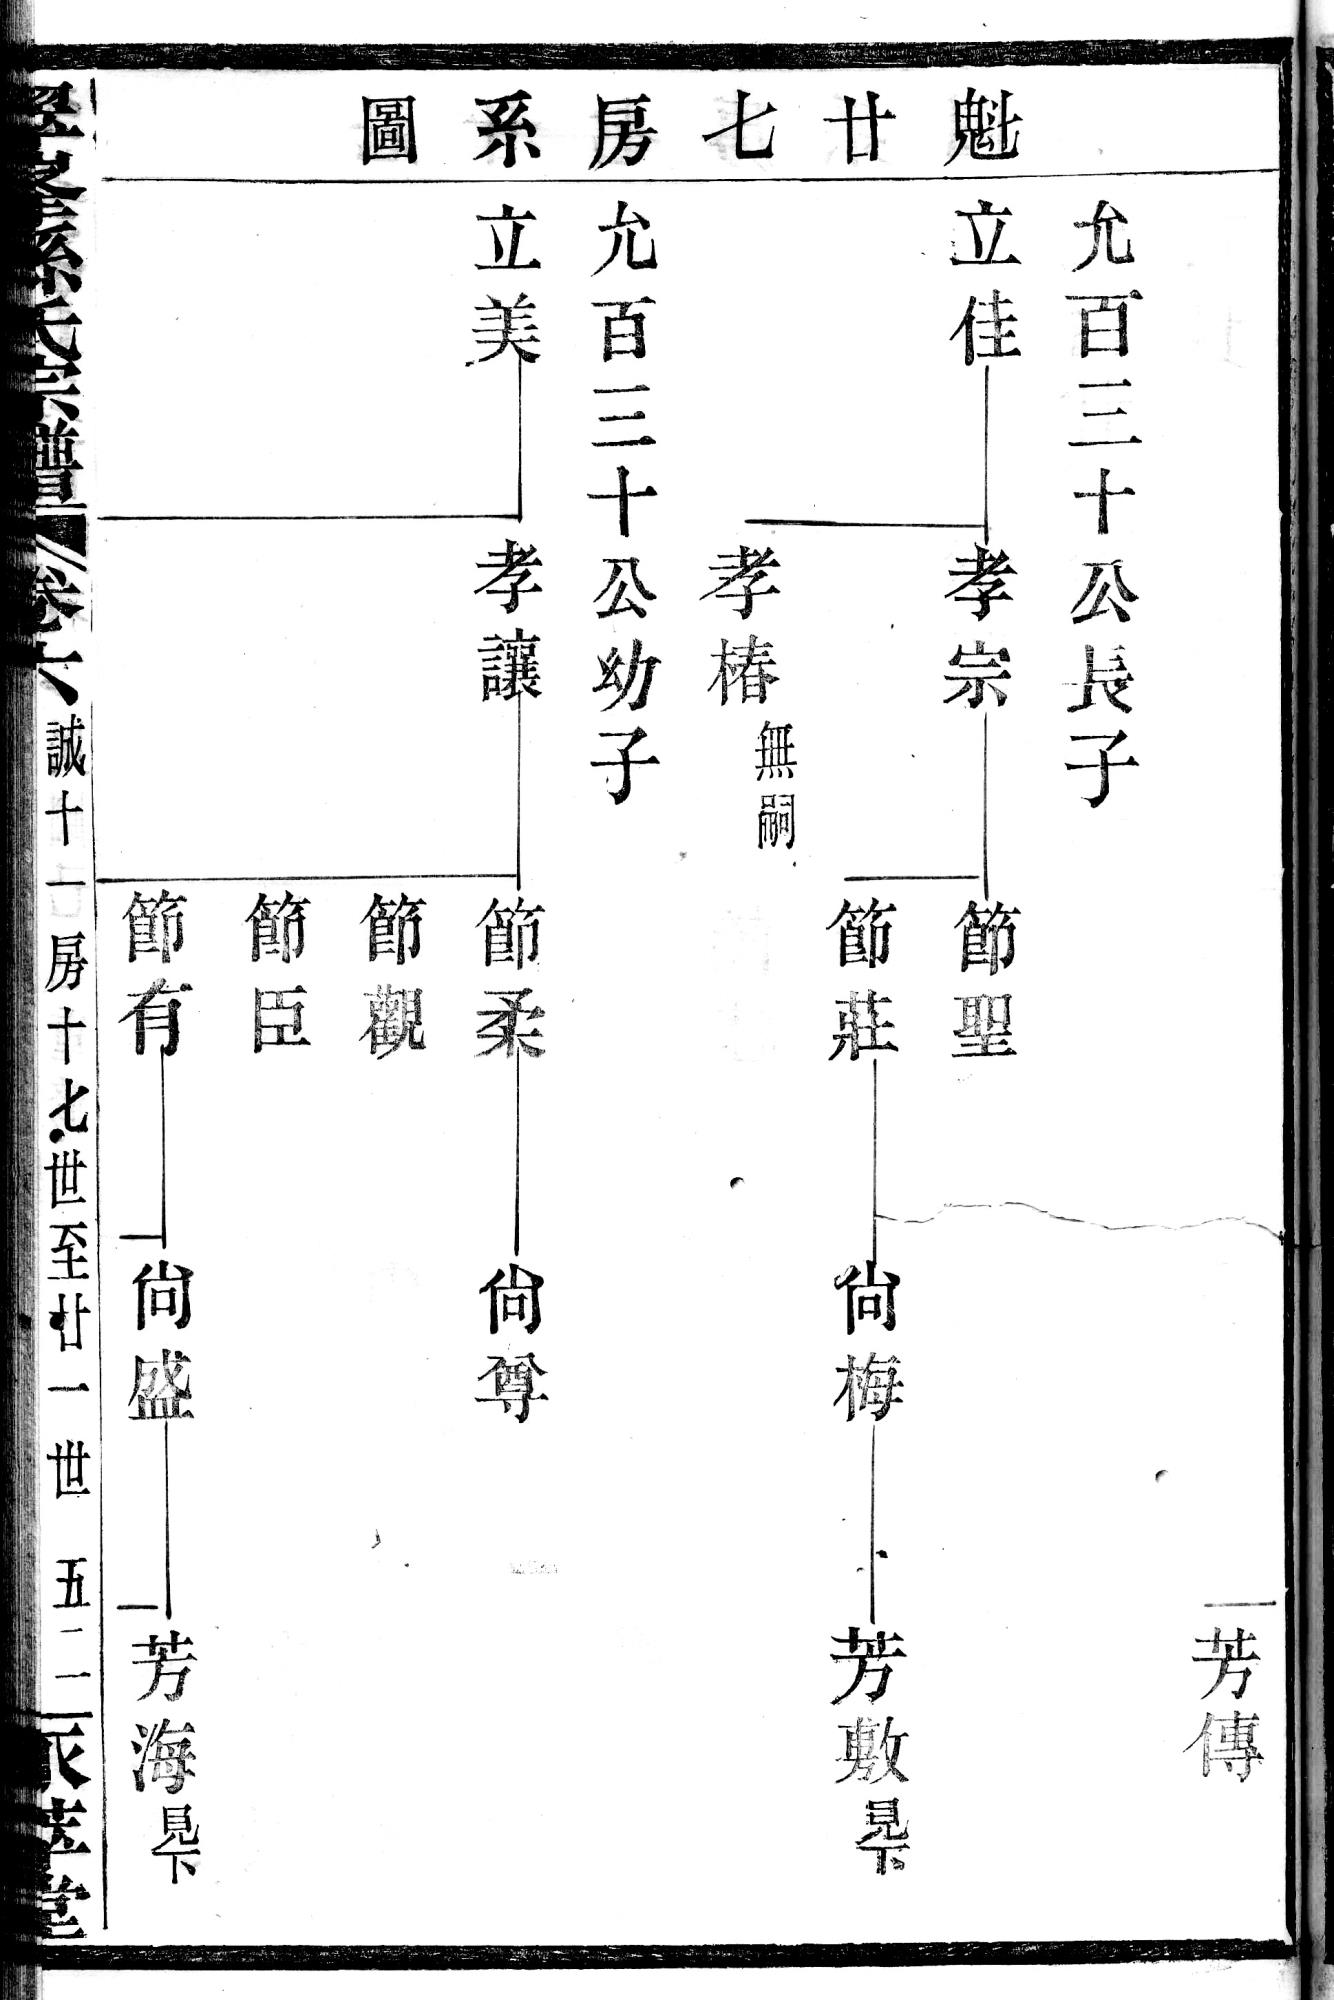 魁廿七房系圖
芳傳
允百三十公長子
立佳
孝宗
節聖
節莊
尙梅
芳敷見下
孝椿無嗣
允百三十公幼子
立美
孝讓
節柔
尙尊
節觀
節臣
節有
尙盛
芳海見下
孫氏宗譜
卷六
誠十一房十七世至廿一世
五二
堂